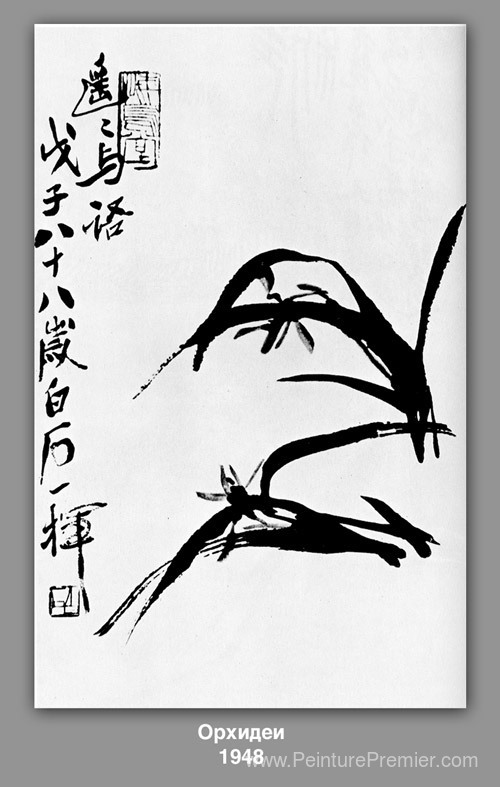 遙〻与語
戊子八十八歲白石一揮
Орхидеи
1948
www.PeinturePremier.com